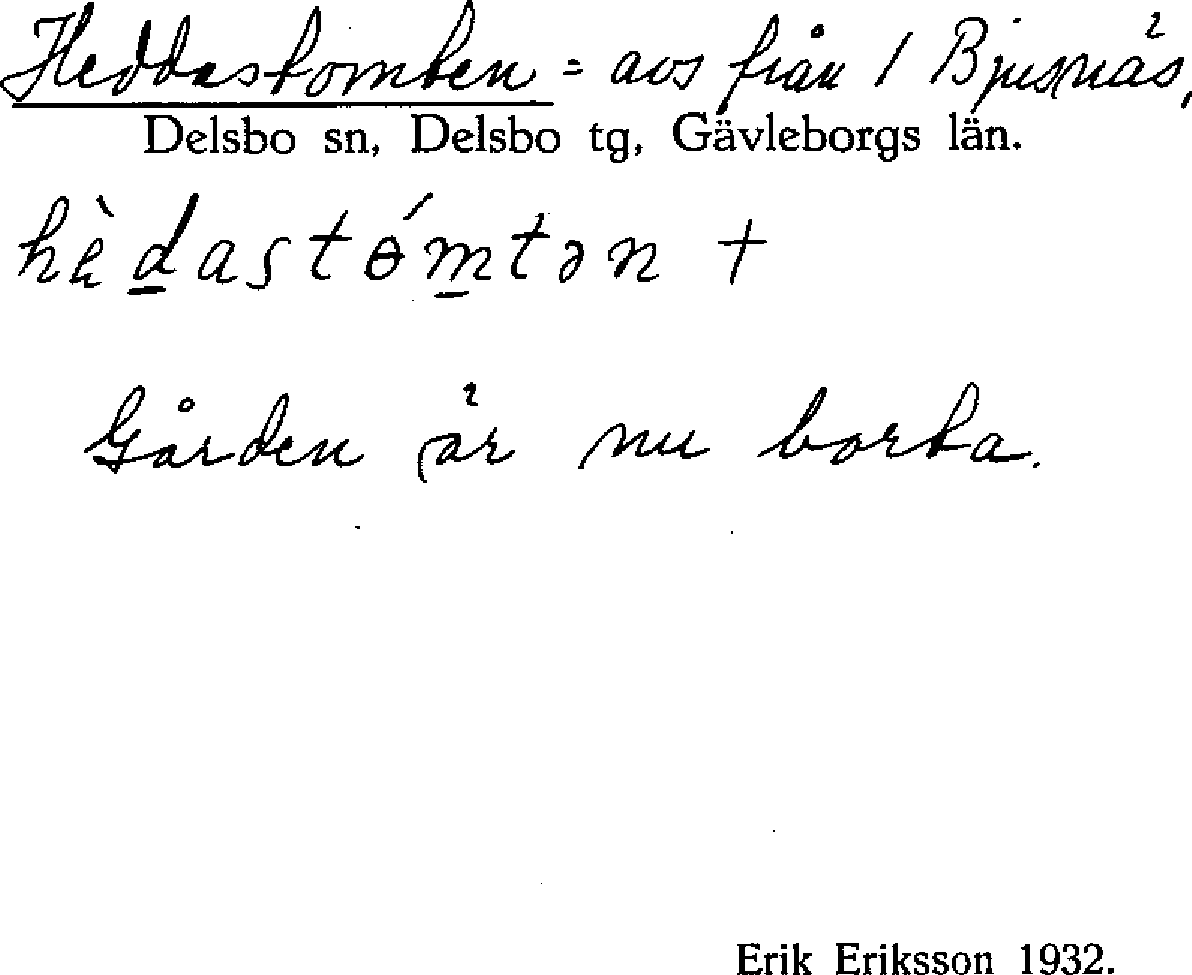 Heddastomten = avs från 1 Bjusnäs,
Delsbo sn, Delsbo tg, Gävleborgs län.
hèd̲astɵ́m̲tən +
Gården är nu borta.
Erik Eriksson 1932.